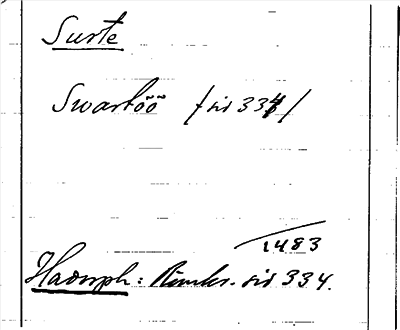 Surte
Swartöö /sid 334/
1483
Hadorph: Rimkr. sid 334.